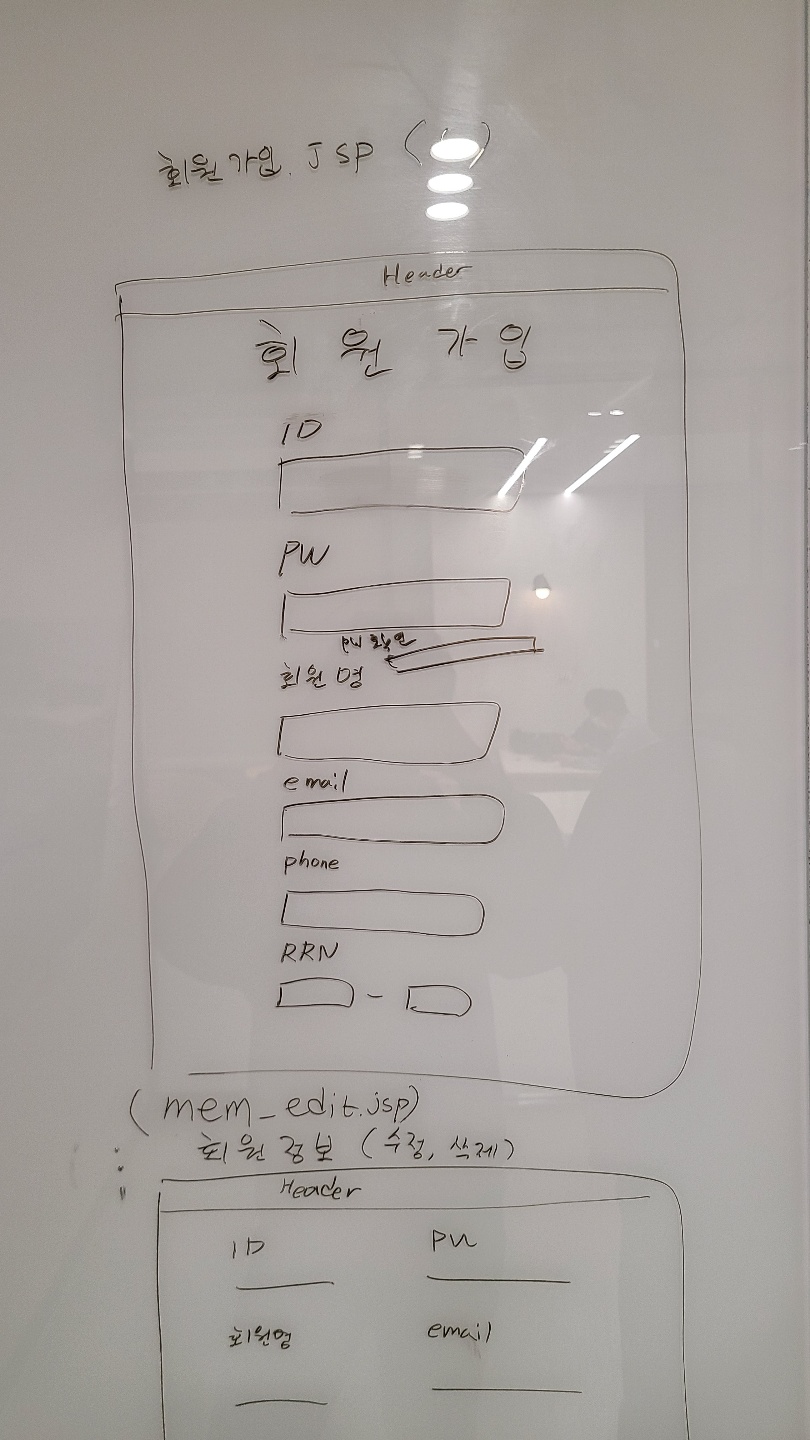 회원가입.JSP ( )
Header
회원가입
ID
PW
PW 확인
회원명
email
phone
RRN
-
(mem_edit.jsp)
회원정보 (수정, 삭제)
Header
ID PW
회원명 email